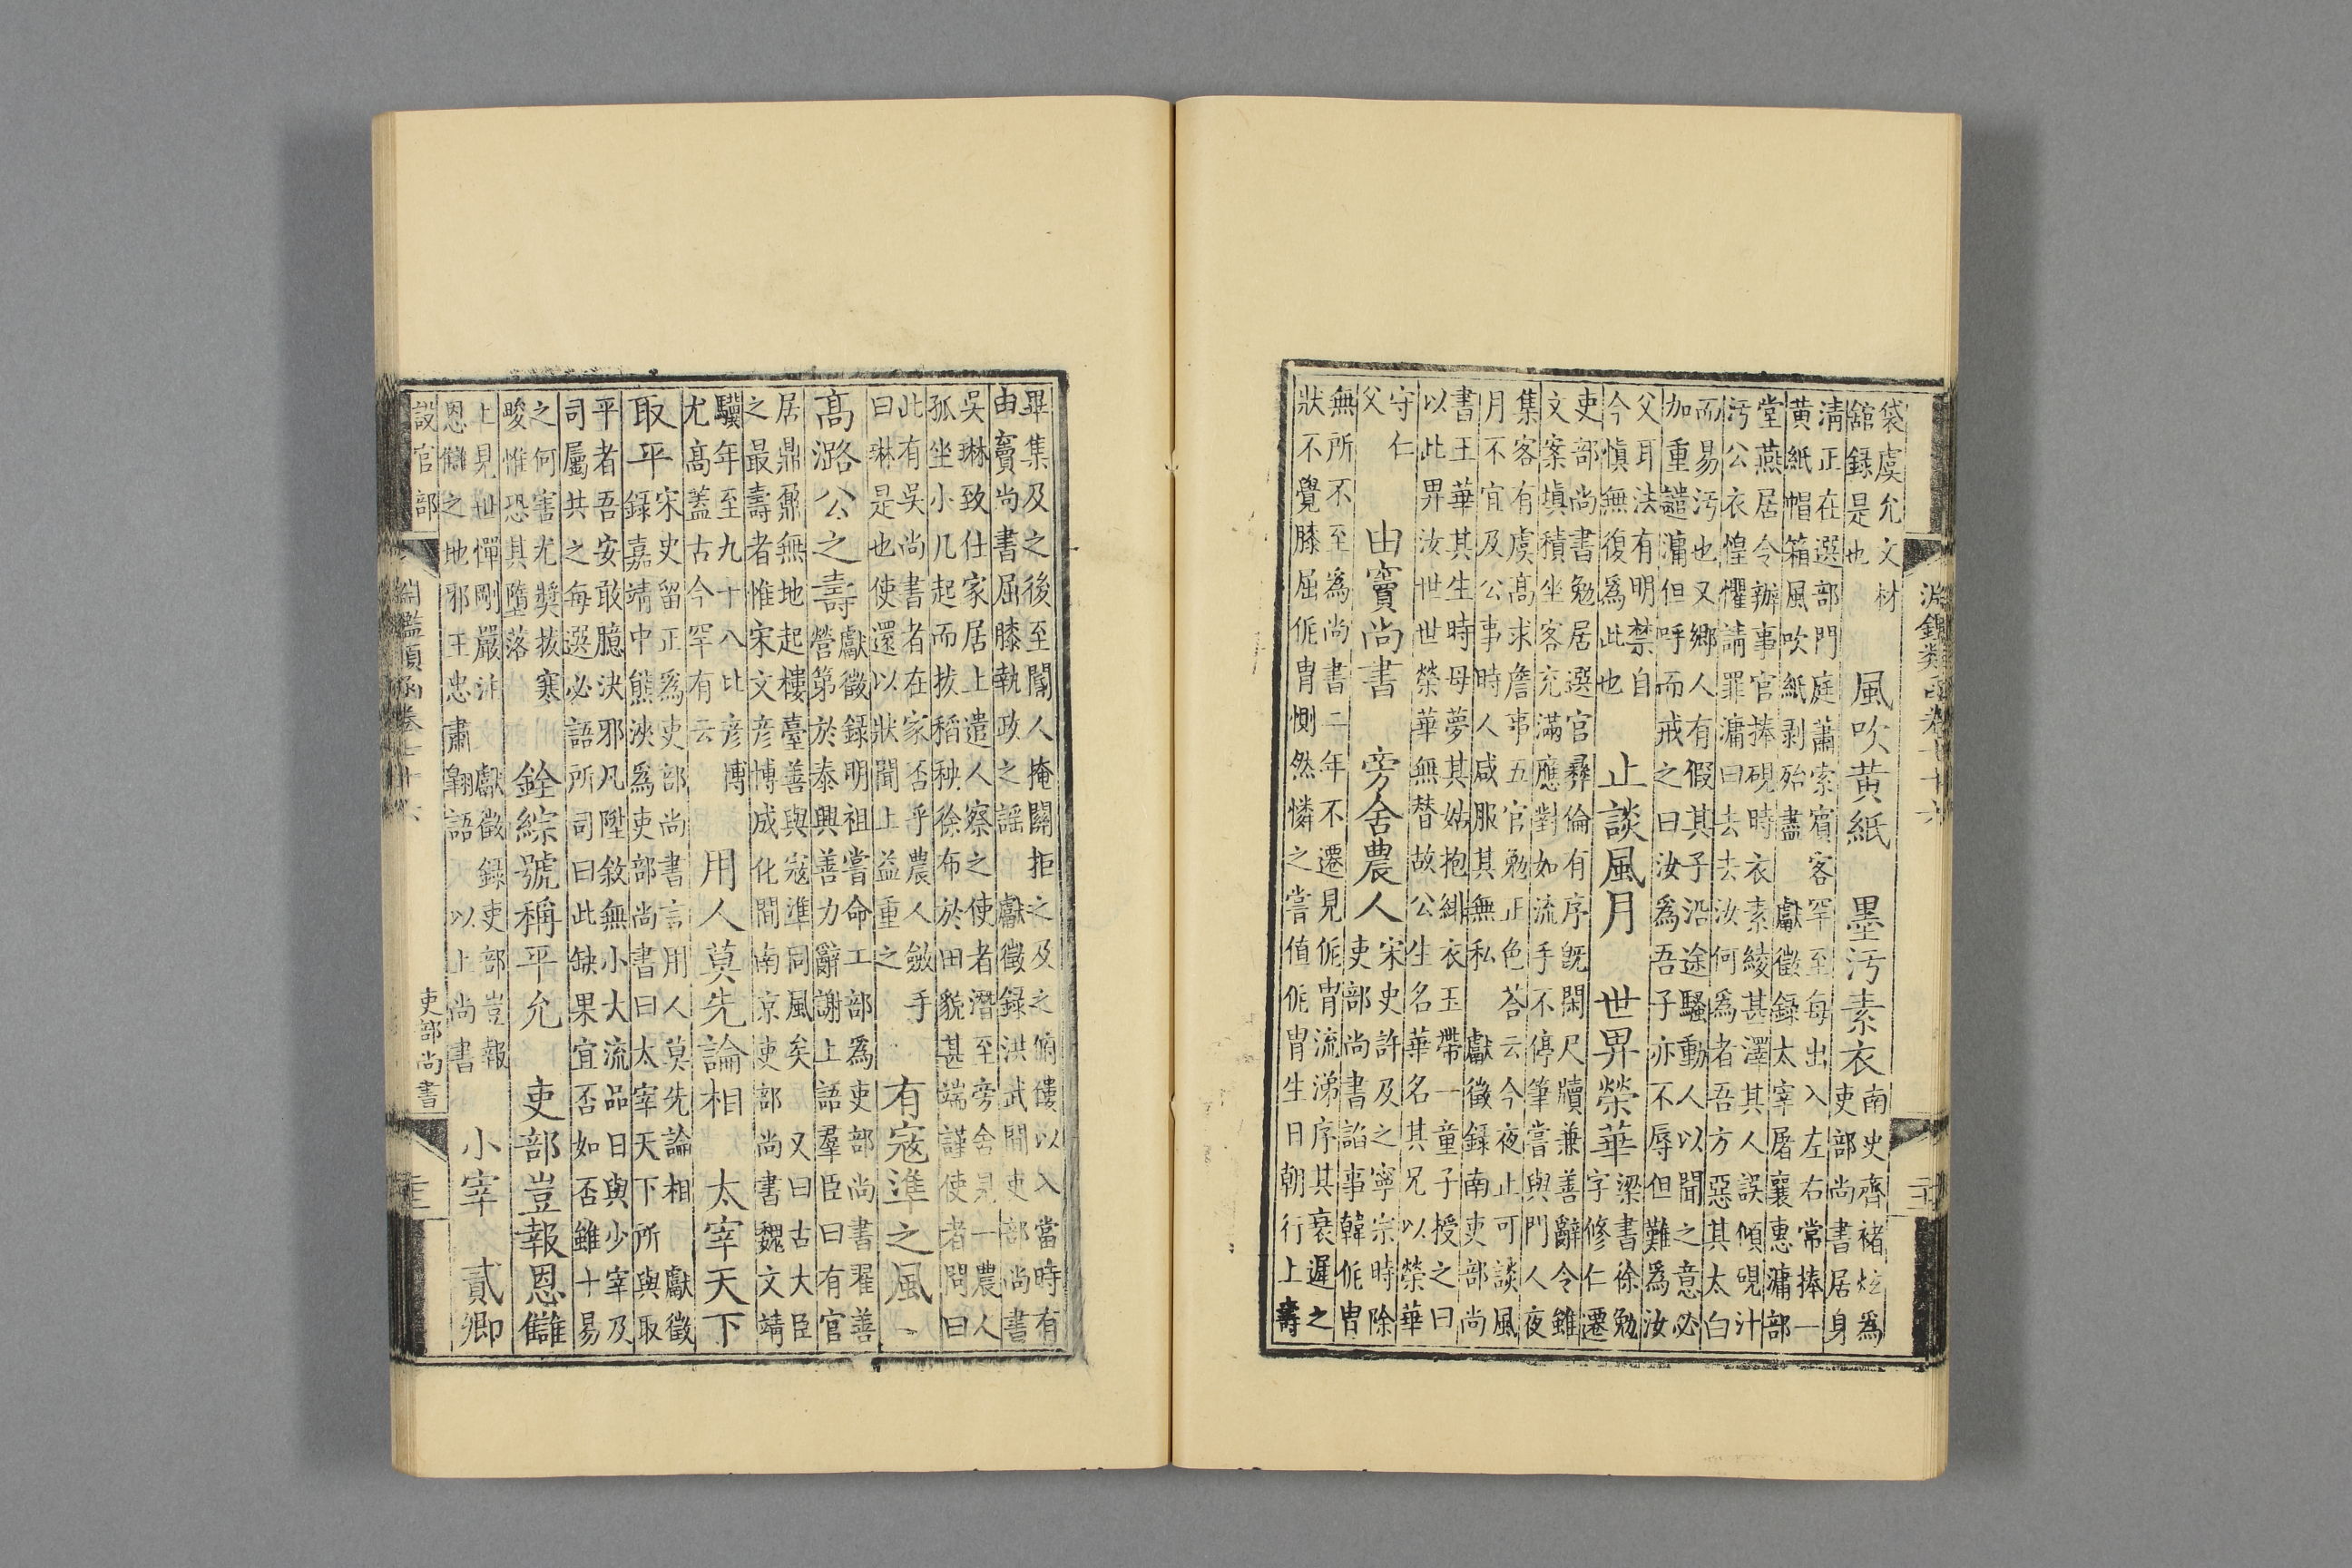 袋虞允文材
舘録是也
風吹黃紙　墨汚素衣
南史齊褚炫爲
吏部尚書居身
清正在選部門庭蕭索賓客罕至每出入左右常捧一
黃紙帽箱風吹紙剥殆盡　獻徵錄太宰屠襄惠滽部
堂燕居令辦事官捧硯時衣素綾甚澤其人誤傾硯汁
汚公衣惶懼請罪滽曰去去汝何爲者吾方惡其太白
而易汚也又鄉人有假其子沿途騷動人以聞之意必
加重譴滽但呼而戒之曰汝爲吾子亦不辱但難爲汝
父耳法有明禁自
今愼無復爲此也
止談風月　世畀榮華
梁書徐勉
字修仁遷
吏部尚書勉居選官彝倫有序既閑尺牘兼善辭令雖
文案塡積坐客充滿應對如流手不停筆嘗與門人夜
集客有虞髙求詹事五官勉正色荅云今夜止可談風
月不宜及公事時人咸服其無私　獻徵錄南吏部尚
書王華其生世時母夢其姑抱緋衣玉帶一童子授之曰
以此畀汝世世榮華無替故公生名華名其兄以榮華
守仁
父
由竇尚書　旁舍農人
宋史許及之寧宗時除
吏部尚書諂事韓侂冑
無所不至爲尚書二年不遷見侂冑流涕序其衰遲之
狀不覺膝屈侂冑惻然憐之嘗值侂冑生日朝行上壽
淵鑑類函卷七十六
畢集及之後至閽人掩關拒之及之俯僂以入當時有
由竇尚書屈膝執政之謡　獻徵錄洪武間吏部尚書
吳琳致仕家居上遣人察之使者潛至旁舍見一農人
孤坐小几起而拔稻秧徐布於田貌甚端謹使者問曰
此有吳尚書者在家否乎農人斂手
曰琳是也使還以狀聞上益重之
有寇準之風
髙潞公之壽
獻徵錄明祖嘗命工部爲吏部尚書翟善
營第於泰興善力辭謝上語羣臣曰有官
居鼎鼐無地起樓臺善與寇準同風矣　又曰古大臣
之最壽者惟宋文彦博成化間南京吏部尚書魏文靖
驥年至九十八比彦博
尤髙蓋古今罕有云
用人莫先論相　太宰天下
取平
宋史留正爲吏部尚書言用人莫先論相　獻徵
録嘉靖中熊浹爲吏部尚書曰太宰天下所與取
平者吾安敢臆決邪凡陞敘無小大流品日與少宰及
司屬共之每選必語所司曰此缺果宜否如否雖十易
之何害尤奬拔寒
畯惟恐其墮落
銓綜號稱平允　吏部豈報恩讎
上見世憚剛嚴沭　獻徵録吏部豈報
恩讎之地邪王忠肅翱語　以上尚書
小宰　貳卿
設官部
淵鑑類函卷七十六
吏部尚書